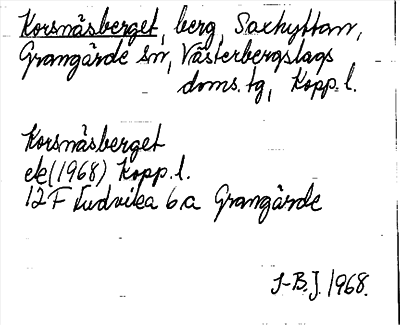 Korsnäsberget, berg, Saxhyttan,
Grangärde sn, Västerbergslags
doms. tg, Kopp. l.
Korsnäsberget
ek (1968) Kopp. l.
12F Ludvika 6a Grangärde
J-B.J. 1968.